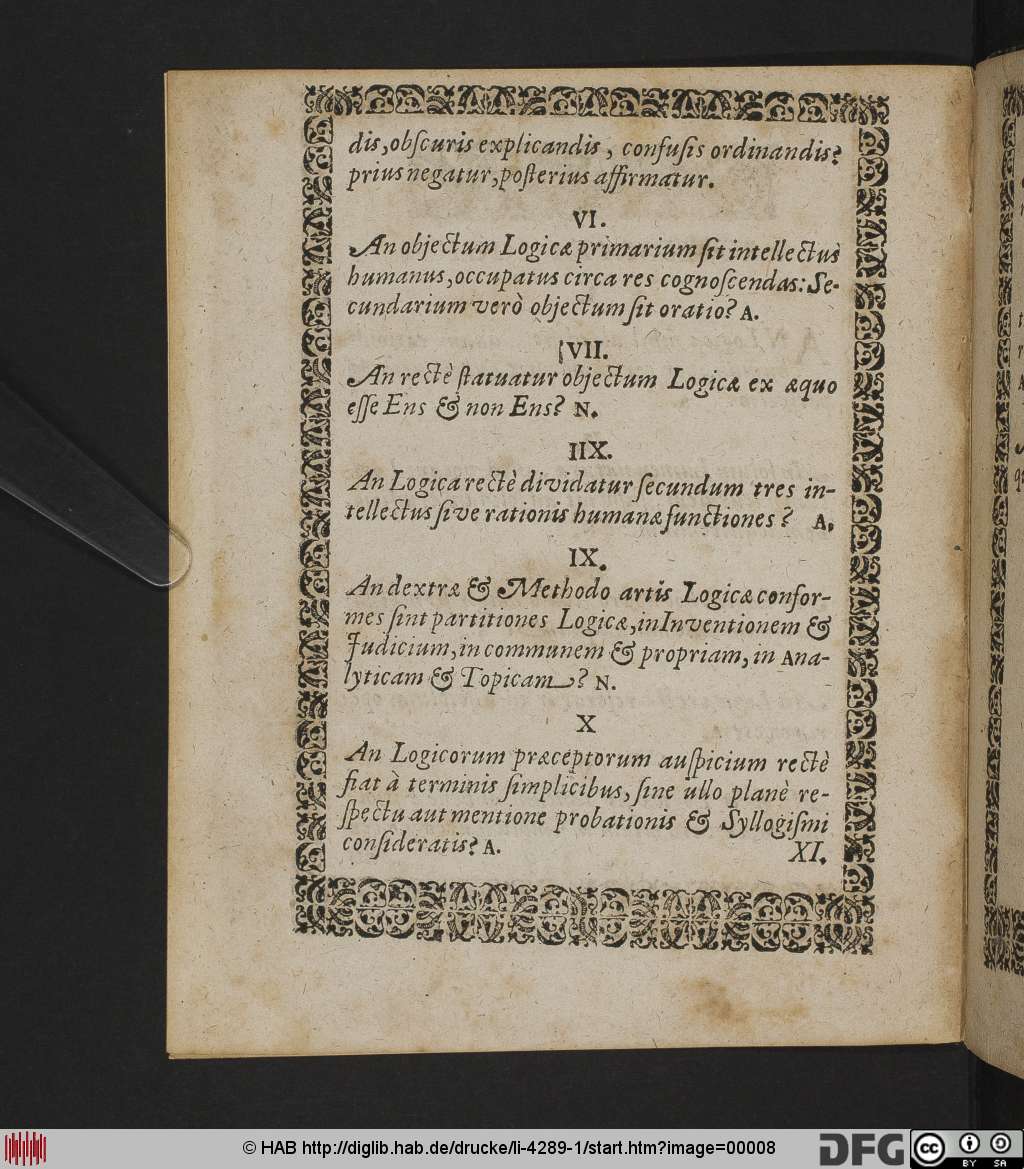 dis, obſcuris explicandis, confuſis ordinandis?
prius negatur, poſterius affirmatur.
VI.
An objectum Logicæ primarium ſit intellectus
humanus, occupatus circa res cognoſcendas: Se-
cundarium verò objectum ſit oratio? A.
VII.
An rectè ſtatuatur objectum Logicæ ex æquo
eſſe Ens & non Ens? N.
IIX.
An Logica rectè dividatur ſecundum tres in-
tellectus ſive rationis humanæ functiones? A.
IX.
An dextræ & Methodo artis Logicæ confor-
mes ſint partitiones Logicæ, in Inventionem &
Judicium, in communem & propriam, in Ana-
lyticam & Topicam? N.
X
An Logicorum præceptorum auſpicium rectè
fiat à terminis ſimplicibus, ſine ullo planè re-
ſpectu aut mentione probationis & Syllogiſmi
conſideratis? A.
XI.
© HAB http://diglib.hab.de/drucke/li-4289-1/start.htm?image=00008
DFG
cc
BY SA